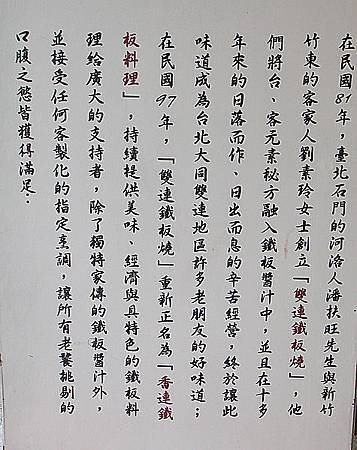 在民國81年，臺北石門的河洛人潘扶旺先生與新竹
竹東的客家人劉素玲女士創立「雙連鐵板燒」，他
們將台、客元素秘方融入鐵板醬汁中，並且在十多
年來的日落而作、日出而息的辛苦經營，終於讓此
味道成為台北大同雙連地區許多老朋友的好味道；
在民國97年，「雙連鐵板燒」重新正名為「香連鐵
板料理」，持續提供美味、經濟與具特色的鐵板料
理給廣大的支持者，除了獨特家傳的鐵板醬汁外，
並接受任何客製化的指定烹調，讓所有老饕挑剔的
口腹之慾皆獲得滿足：